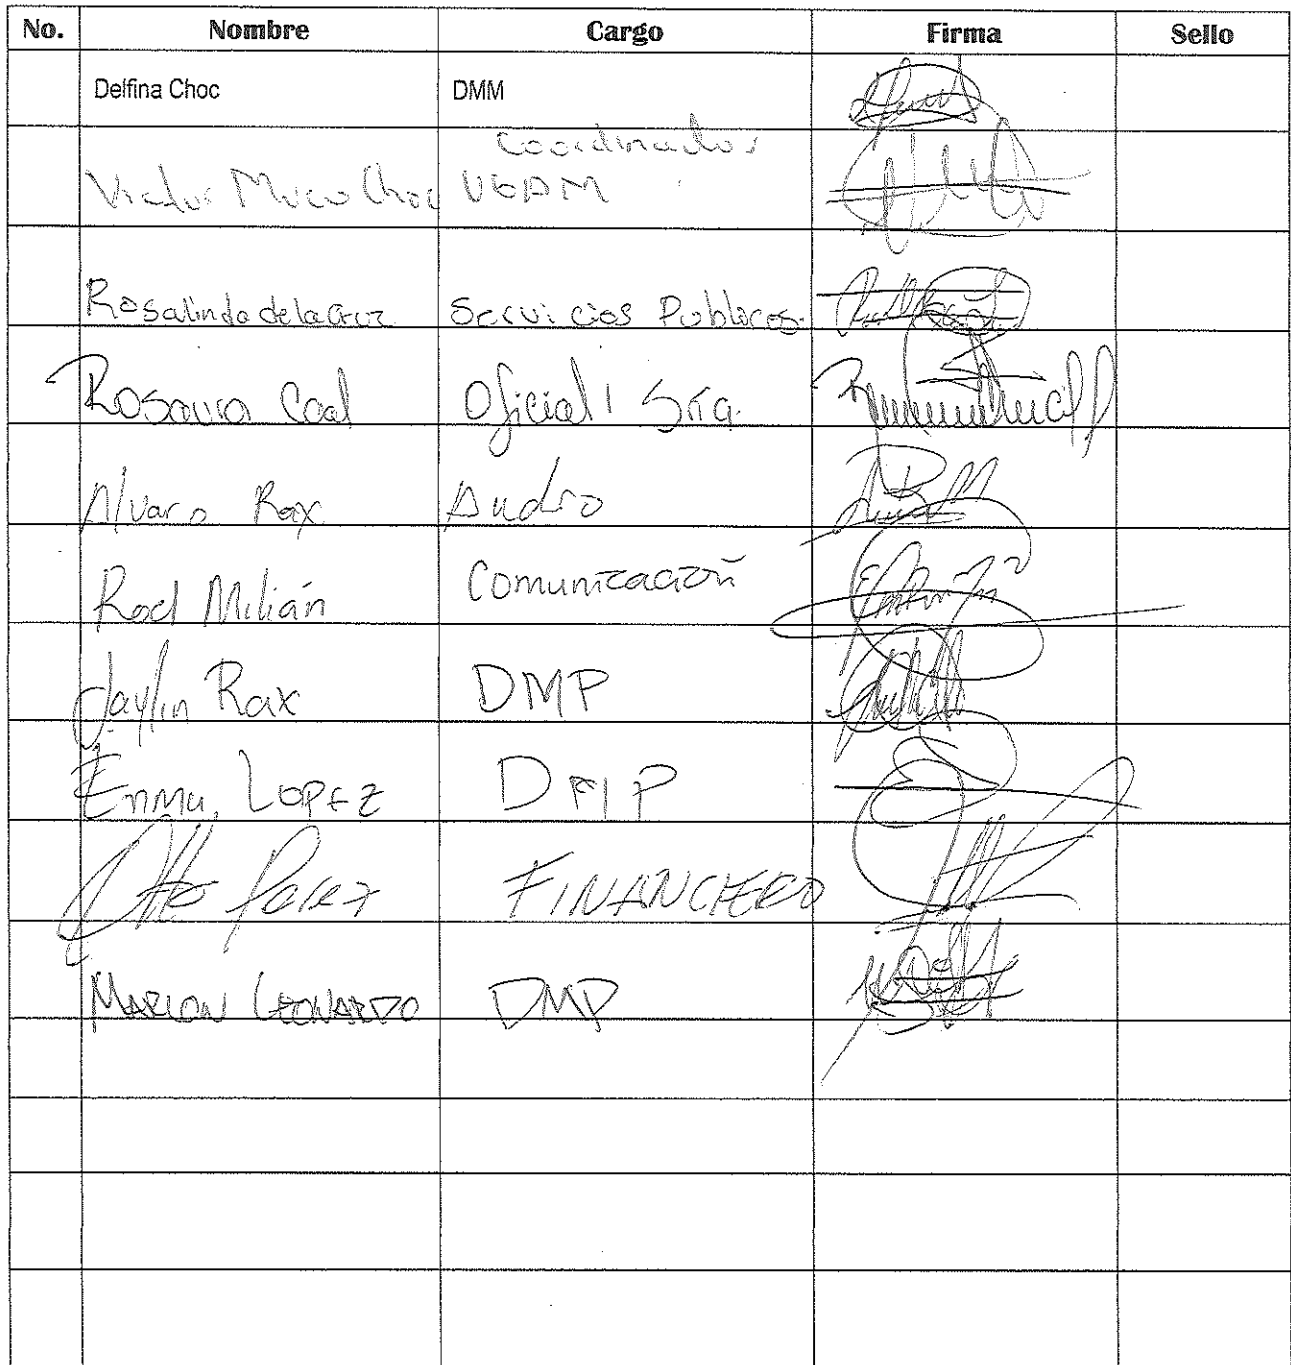 No. Nombre Cargo Firma Sello
Delfina Choc DMM
Coordinador
Victor Choc
Rosalinda de la Cruz Servicios Publicos.
Rosaura Caal Oficial I Sria.
Alvaro Rax Audio
Rod Milián Comunicación
Jaylin Rax DMP
Enma Lopez DMP
Otto Perez FINANCIERO
MARLON LEONARDO DMP